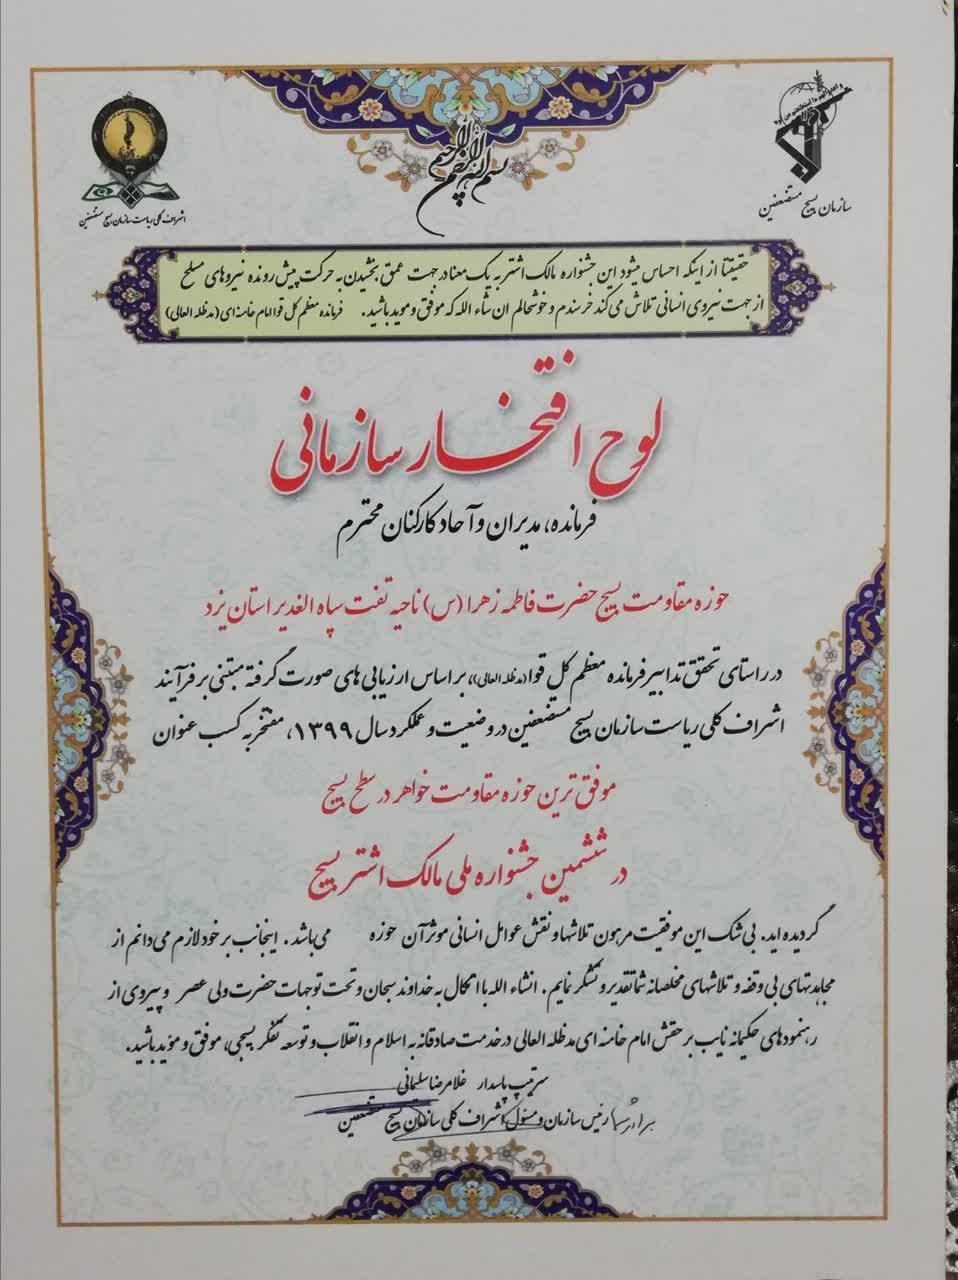 بسم الله الرحمن الرحیم
سازمان بسیج مستضعفین
اشراف کلی ریاست سازمان بسیج مستضعفین
حقیقتا از اینکه احساس میشود این جشنواره مالک اشتر به یک معنا در جهت عمق بخشیدن به حرکت پیش رونده نیروهای مسلح
از جهت نیروی انسانی تلاش می کند خرسندم و خوشحالم ان شاء الله که موفق و موید باشید. فرمانده معظم کل قوا امام خامنه ای (مدظله العالی)
لوح افتخار سازمانی
فرمانده، مدیران و آحاد کارکنان محترم
حوزه مقاومت بسیج حضرت فاطمه زهرا (س) ناحیه تفت سپاه الغدیر استان یزد
در راستای تحقق تدابیر فرمانده معظم کل قوا (مدظله العالی)، بر اساس ارزیابی های صورت گرفته مبتنی بر فرآیند
اشراف کلی ریاست سازمان بسیج مستضعفین در وضعیت و عملکرد سال ۱۳۹۹، مفتخر به کسب عنوان
موفق ترین حوزه مقاومت خواهر در سطح بسیج
در ششمین جشنواره ملی مالک اشتر بسیج
گردیده اید. بی شک این موفقیت مرهون تلاشها و نقش عوامل انسانی موثر آن حوزه می باشد. اینجانب بر خود لازم می دانم از
مجاهدتهای بی وقفه و تلاشهای مخلصانه شما تقدیر و تشکر نمایم. انشاء الله با اتکال به خداوند سبحان و تحت توجهات حضرت ولی عصر و پیروی از
رهنمودهای حکیمانه نایب بر حقش امام خامنه ای مدظله العالی در خدمت صادقانه به اسلام و انقلاب و توسعه تفکر بسیجی، موفق و مؤید باشید.
سرتیپ پاسدار غلامرضا سلیمانی
رئیس سازمان و مسئول اشراف کلی سازمان بسیج مستضعفین